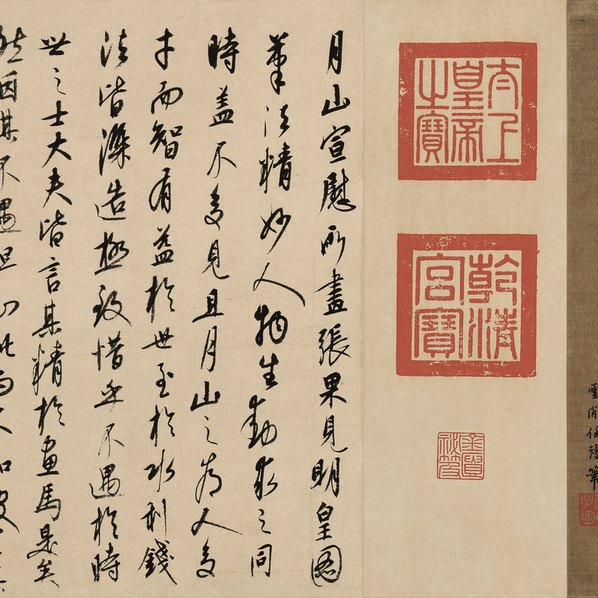 雲間任筆
太上皇帝之寶
乾清宮寶
月山宣慰所畫張果見明皇圖
筆法精妙人物生動求之同
時蓋不多見且月山之為人多
才而智有益於世至於水利錢
法皆深造極致惜乎不遇於時
世之士大夫皆言其精於畫馬是矣
然因其不遇但以此而人知